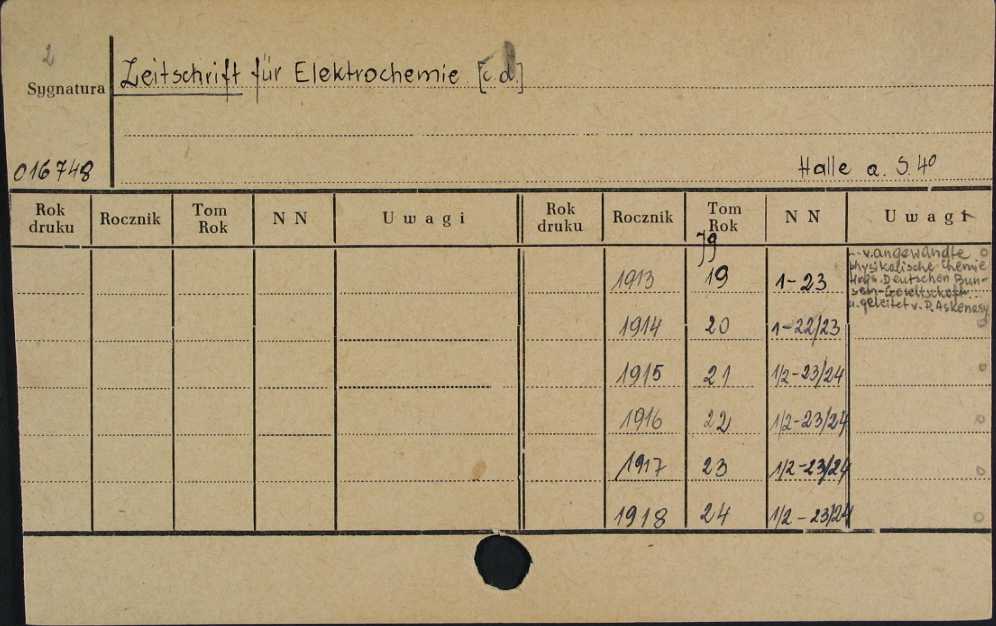 2
Sygnatura Zeitschrift für Elektrochemie [c.d.]
016748 Halle a. S. 4º
Rok druku Rocznik Tom Rok N N Uwagi Rok druku Rocznik Tom Rok N N Uwagi
1913 19 19 1-23 v. angewandte physikalische Chemie
Hrsg. Deutschen Bunsen-Gesellschaft
u. geleitet v. P. Askenasy
1914 20 1-22/23
1915 21 1/2-23/24
1916 22 1/2-23/24
1917 23 1/2-23/24
1918 24 1/2-23/24